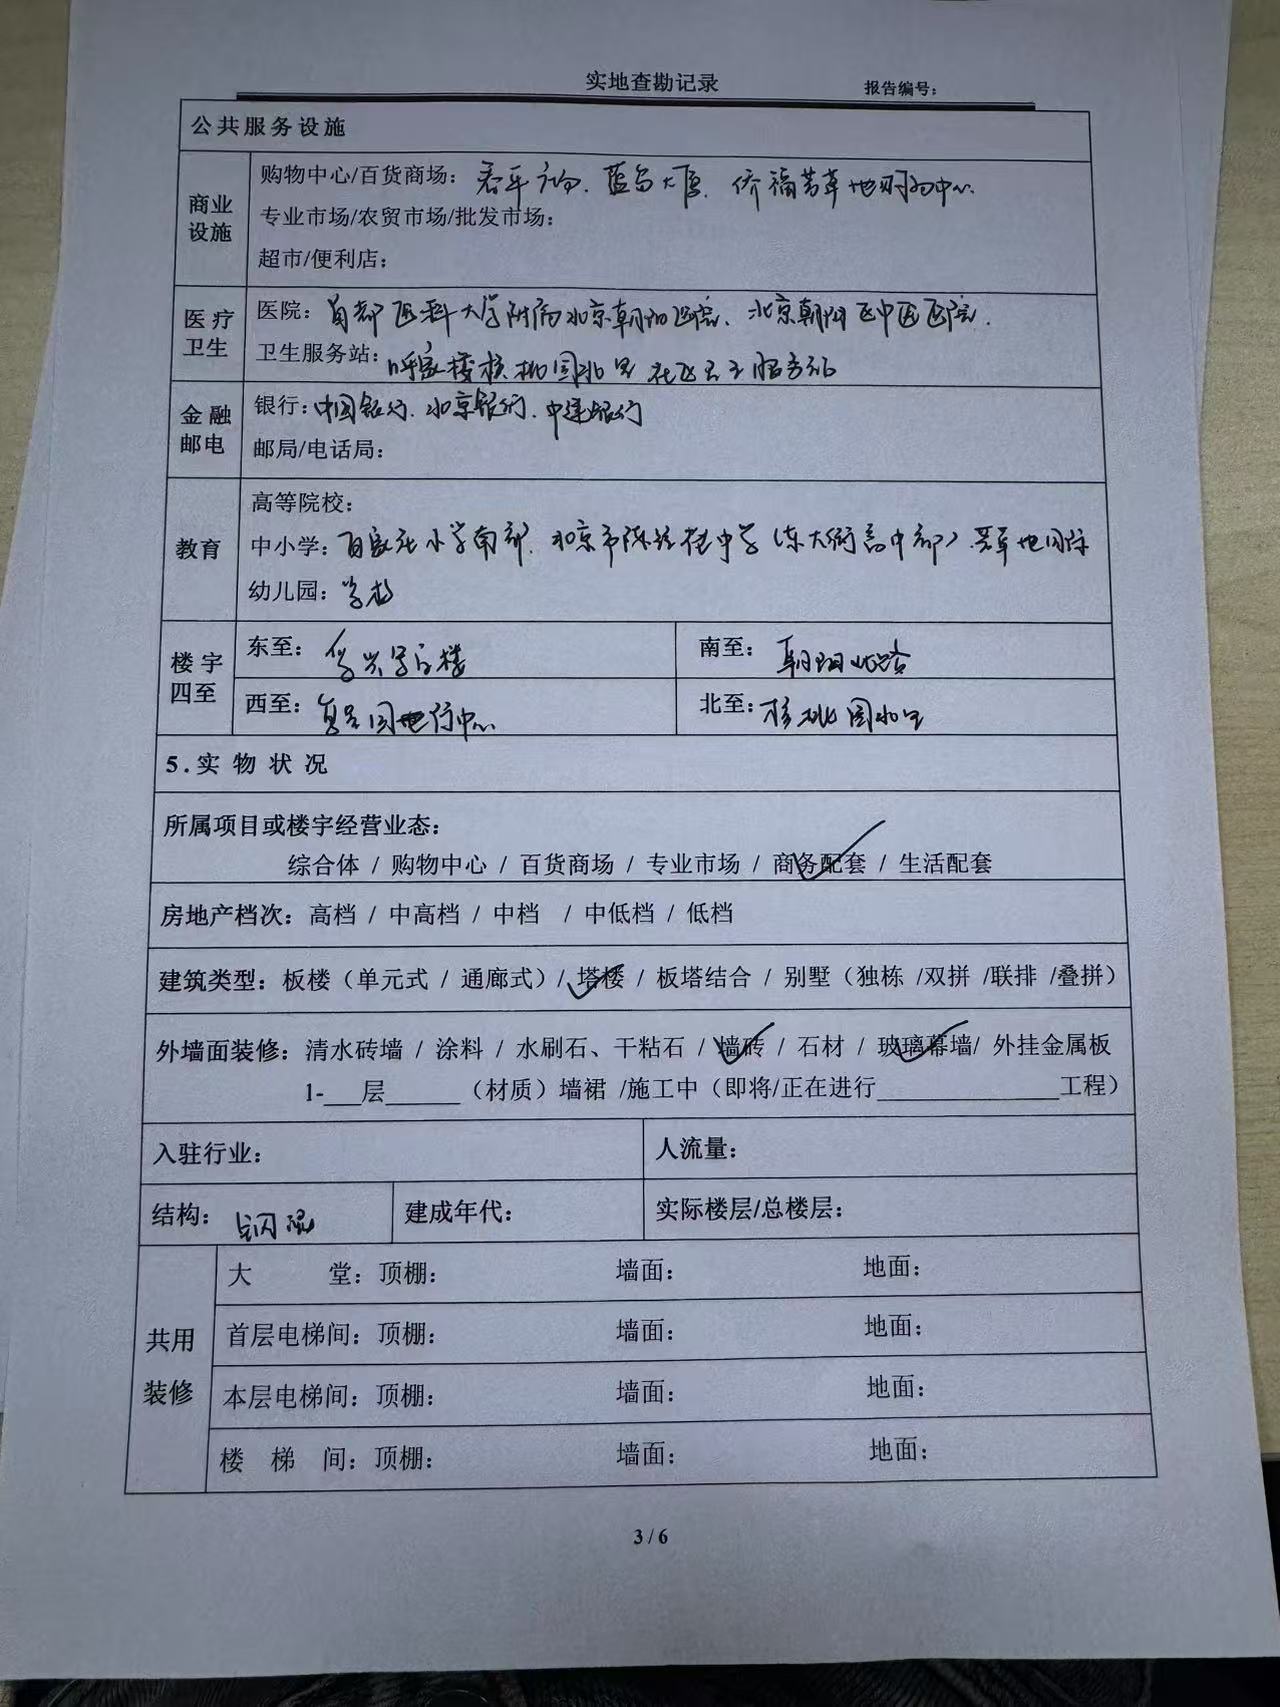 实地查勘记录 报告编号：
公共服务设施
商业设施
购物中心/百货商场：泰平广场、蓝岛大厦、侨福芳草地购物中心
专业市场/农贸市场/批发市场：
超市/便利店：
医疗卫生
医院：首都医科大学附属北京朝阳医院、北京朝阳区中医医院.
卫生服务站：呼家楼核桃园北里社区卫生服务站
金融邮电
银行：中国银行、北京银行、中建银行
邮局/电话局：
教育
高等院校：
中小学：百家庄小学南部、北京市陈经纶中学（东大街高中部）、芳草地国际
幼儿园：学校
楼宇四至
东至：华兴写字楼 南至：朝阳北路
西至： 北至：核桃园北里
5.实物状况
所属项目或楼宇经营业态：
综合体 / 购物中心 / 百货商场 / 专业市场 / 商务配套 / 生活配套
房地产档次：高档 / 中高档 / 中档 / 中低档 / 低档
建筑类型：板楼（单元式 / 通廊式）/ 塔楼 / 板塔结合 / 别墅（独栋 /双拼 /联排 /叠拼）
外墙面装修：清水砖墙 / 涂料 / 水刷石、干粘石 / 墙砖 / 石材 / 玻璃幕墙/ 外挂金属板
1-___层______（材质）墙裙 /施工中（即将/正在进行______________工程）
入驻行业： 人流量：
结构：钢混 建成年代： 实际楼层/总楼层：
共用装修
大堂：顶棚： 墙面： 地面：
首层电梯间：顶棚： 墙面： 地面：
本层电梯间：顶棚： 墙面： 地面：
楼梯间：顶棚： 墙面： 地面：
3 / 6